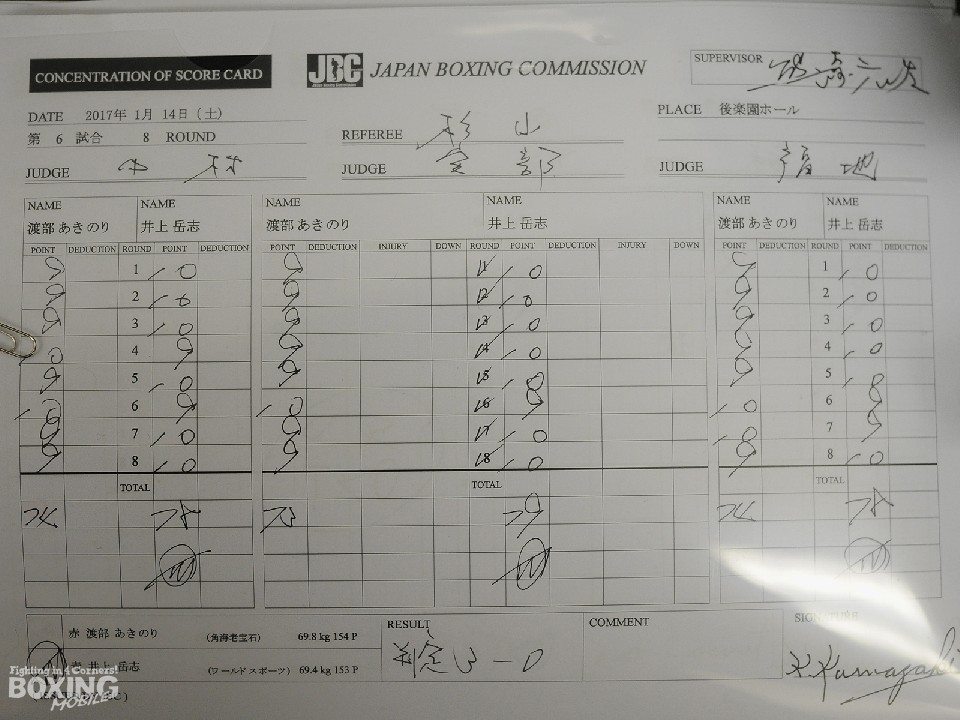 CONCENTRATION OF SCORE CARD
JBC JAPAN BOXING COMMISSION
SUPERVISOR
DATE 2017年 1月 14日 (土)
PLACE 後楽園ホール
第 6 試合 8 ROUND
REFEREE 杉山
JUDGE 中村
JUDGE
JUDGE
NAME NAME NAME NAME NAME NAME
渡部 あきのり 井上 岳志 渡部 あきのり 井上 岳志 渡部 あきのり 井上 岳志
POINT DEDUCTION ROUND POINT DEDUCTION POINT DEDUCTION INJURY DOWN ROUND POINT DEDUCTION INJURY DOWN POINT DEDUCTION ROUND POINT DEDUCTION
9 1 10 9 11 10 9 1 10
9 2 10 9 12 10 9 2 10
9 3 10 9 13 10 9 3 10
10 4 9 9 14 10 9 4 10
9 5 10 9 15 10 9 5 10
10 6 9 10 16 9 10 6 9
9 7 10 9 17 10 10 7 9
9 8 10 9 18 10 9 8 10
TOTAL TOTAL TOTAL
74 78 73 79 74 78
赤 渡部 あきのり (角海老宝石) 69.8 kg 154 P
井上 岳志 (ワールドスポーツ) 69.4 kg 153 P
RESULT
判定 3-0
COMMENT
Fighting in 4 Corners!
BOXING
MOBILE